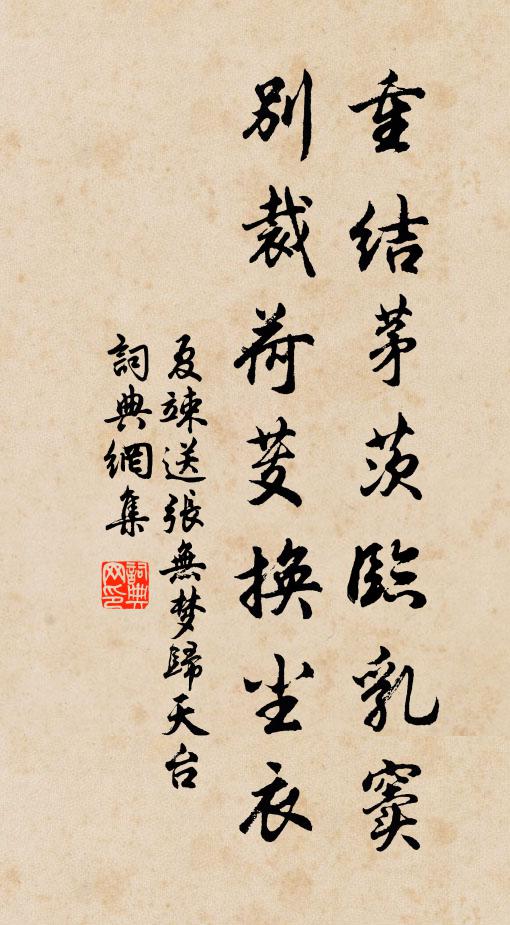 重结茅茨臨乳竇
别裁荷芰换尘衣
夏竦送張無梦歸天台
詞典網集
詞典网印